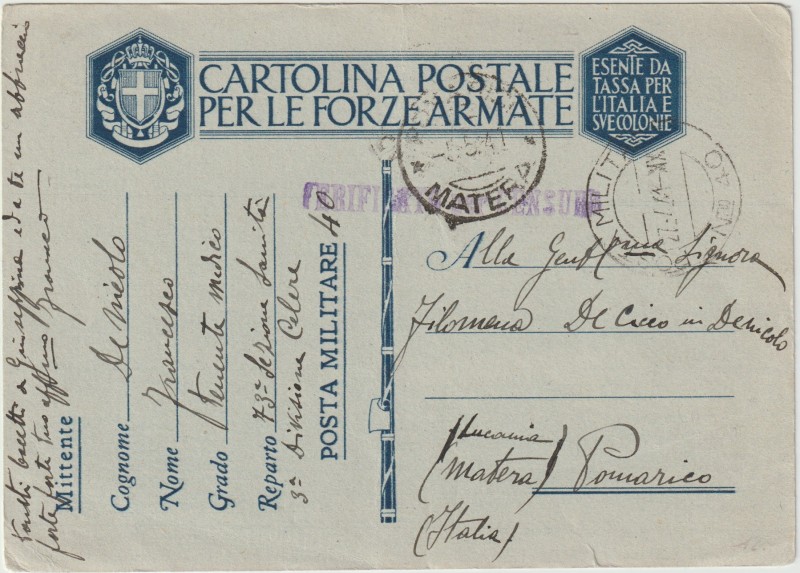 CARTOLINA POSTALE
PER LE FORZE ARMATE
ESENTE DA
TASSA PER
L'ITALIA E
SVE COLONIE
MATERA
VERIFICATO CENSURA
POSTA MILITARE 40
Mittente
Cognome De Nicolo
Nome Francesco
Grado Tenente medico
Reparto 73ª Sezione Sanità
3ª Divisione Celere
Alla Gent/ma Signora
Filomena De Cicco in Denicolo
(Lucania
(Matera) Pomarico
(Italia)
baci a Giuseppina ed a te un abbraccio
forte forte tuo aff/mo Franco